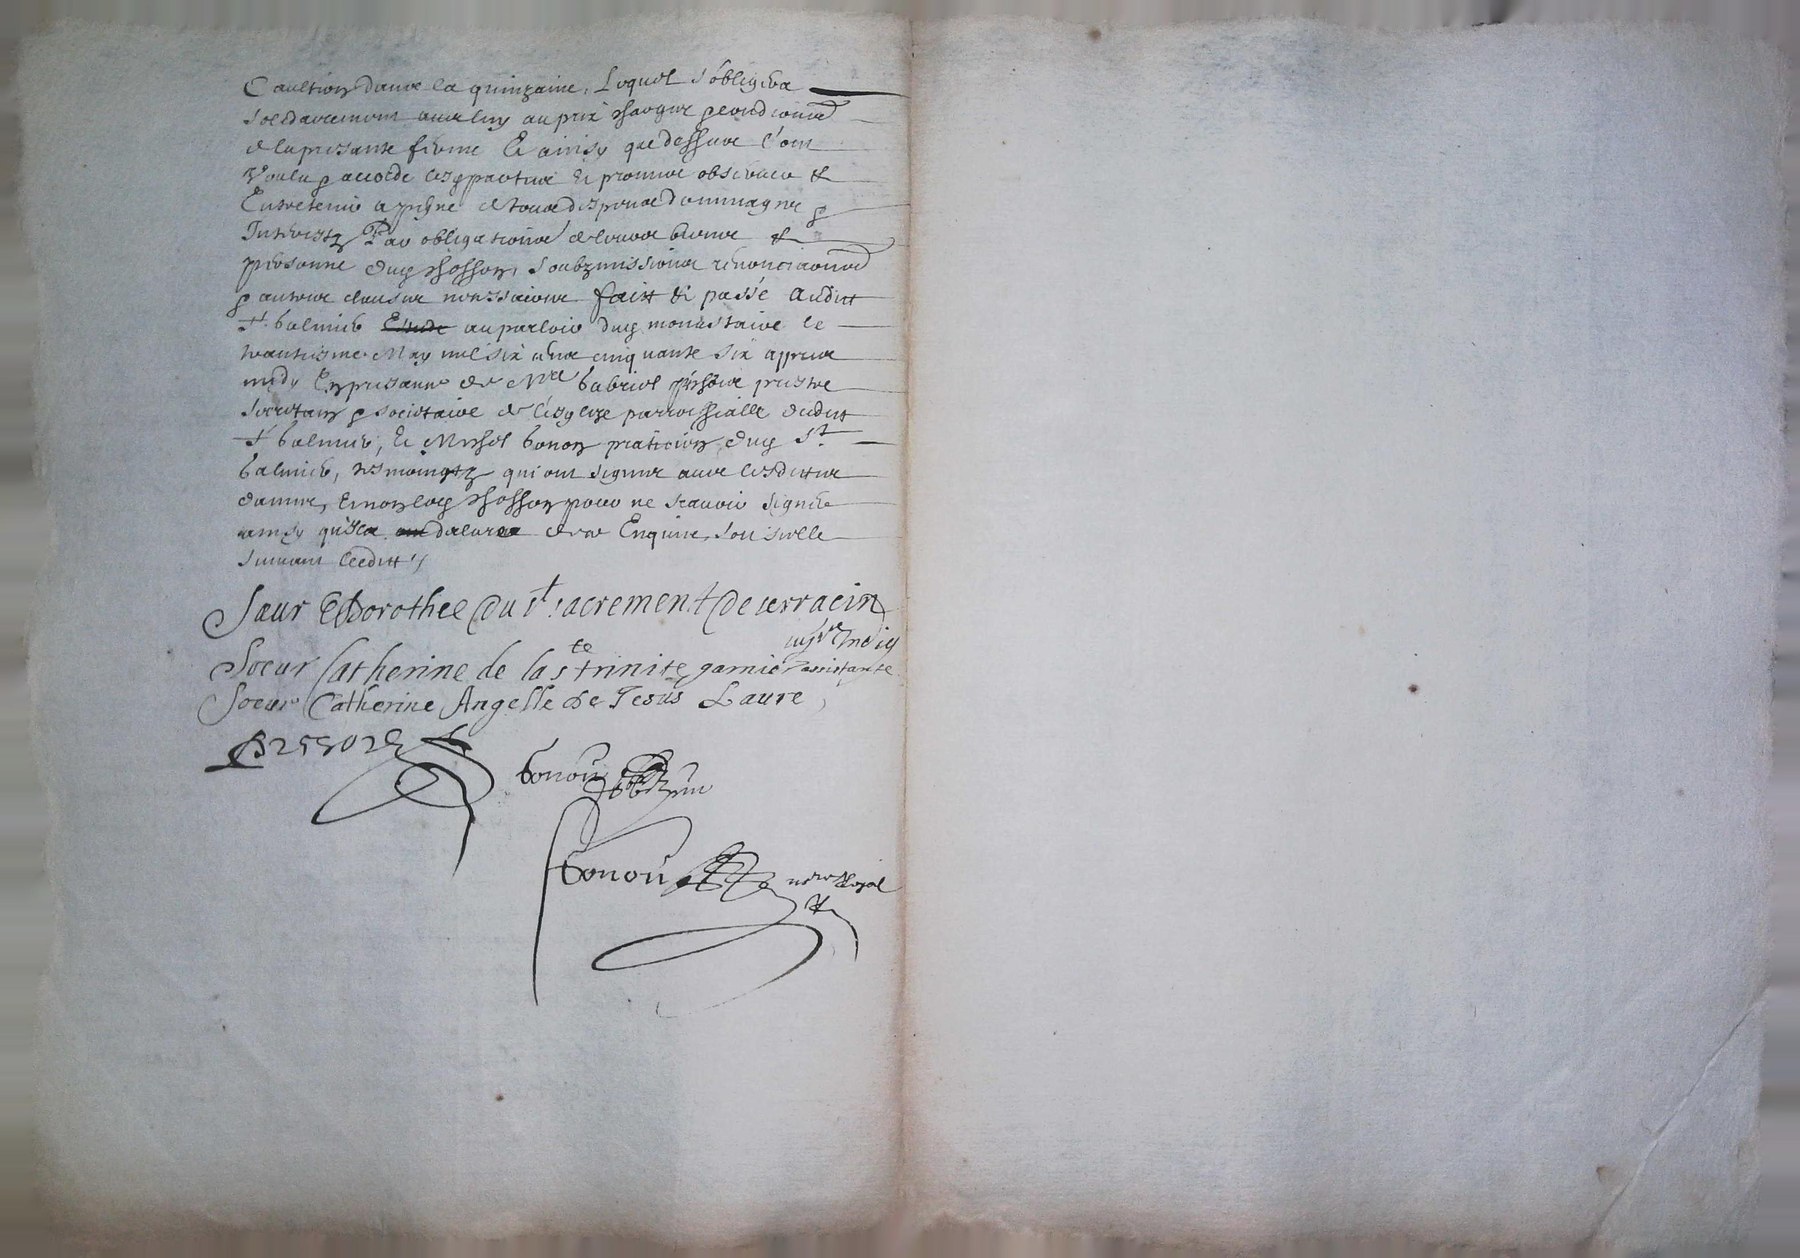 Caultion dans la quinzaine, Lequel s'obligera
sollidairement avec luy au prix charges & conditions
de la presante ferme Et ainsy que dessus l'ont
Voulu & accordé lesd parties Et promis observer &
Entretenir a peyne de tous despens dommages &
Interestz Par obligations de leurs biens &
personne dud soubzmissions renonciations
& autres clauses necessaires faict & passé audict
St galmier au parloir dud monastaire le
trantiesme May mil six cens cinquante six appres
midy En presance de Mre gabriel prestre
secretain & societaire de l'esglize parrochialle dudict
St galmier, Et Michel bonon praticien dud St
galmier, tesmoingtz qui ont signés avec lesdittes
dames, Et non led pour ne scavoir signer
ainsy qu'il a declaré de ce Enquis, soit seellé
suivant l'edict
Saeur Dorothee du st sacrement de verracin
Soeur Catherine de la ste trinite garnie assistante
Soeur Catherine Angelle de Jesus Laure
bonon
bonon nore Royal